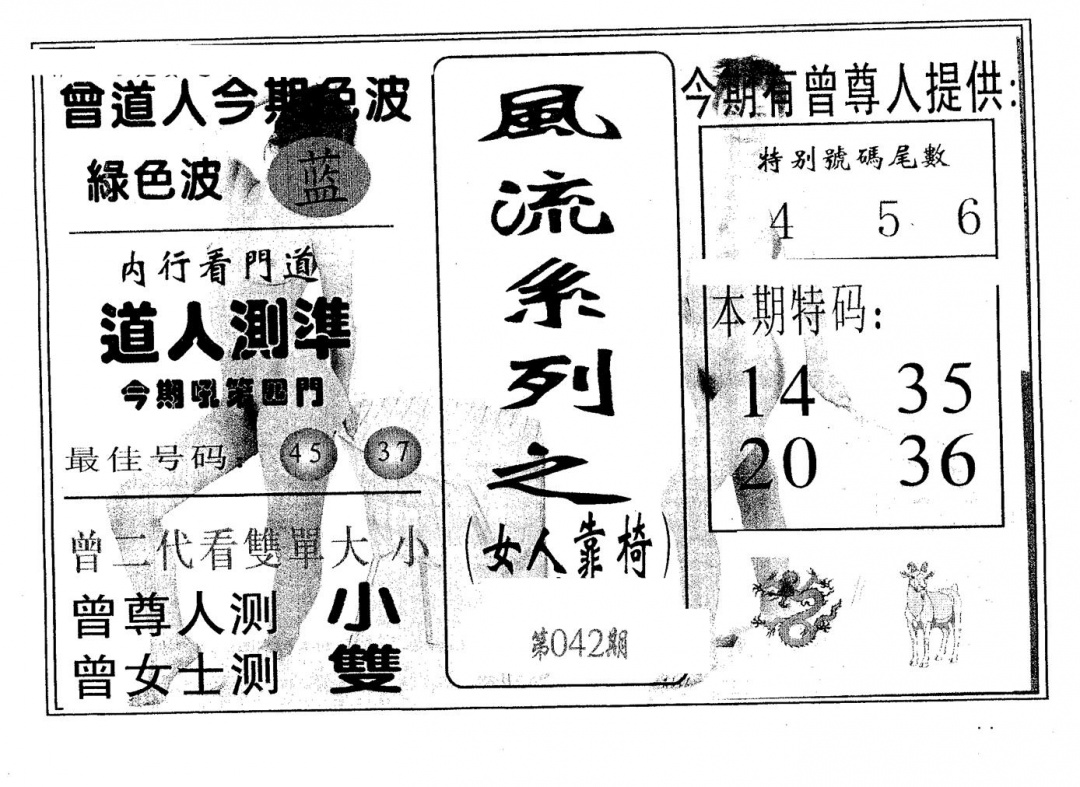 曾道人今期色波
綠色波
蓝
内行看門道
道人測準
今期吼第四門
最佳号码:
45
37
曾二代看雙單大小
曾尊人测 小
曾女士测 雙
風流系列之
(女人靠椅)
第042期
今期有曾尊人提供:
特别號碼尾數
4 5 6
本期特码:
14 35
20 36